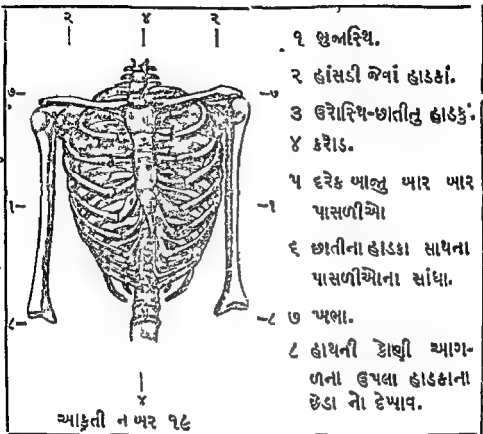 ૨ ૪ ૨
૭ ૭
૧ ૧
૮ ૮
૪
આકૃતી ન બર ૧૯
૧ ભુજાસ્થિ.
૨ હાંસડી જેવાં હાડકાં.
૩ ઉરોસ્થિ-છાતીનુ હાડકું.
૪ કરોડ.
૫ દરેક બાજુ બાર બાર
પાસળીઓ
૬ છાતીના હાડકા સાથના
પાસળીઓના સાંધા.
૭ ખભા.
૮ હાથની કોણી આગ-
ળના ઉપલા હાડકાના
છેડા નો દેખાવ.